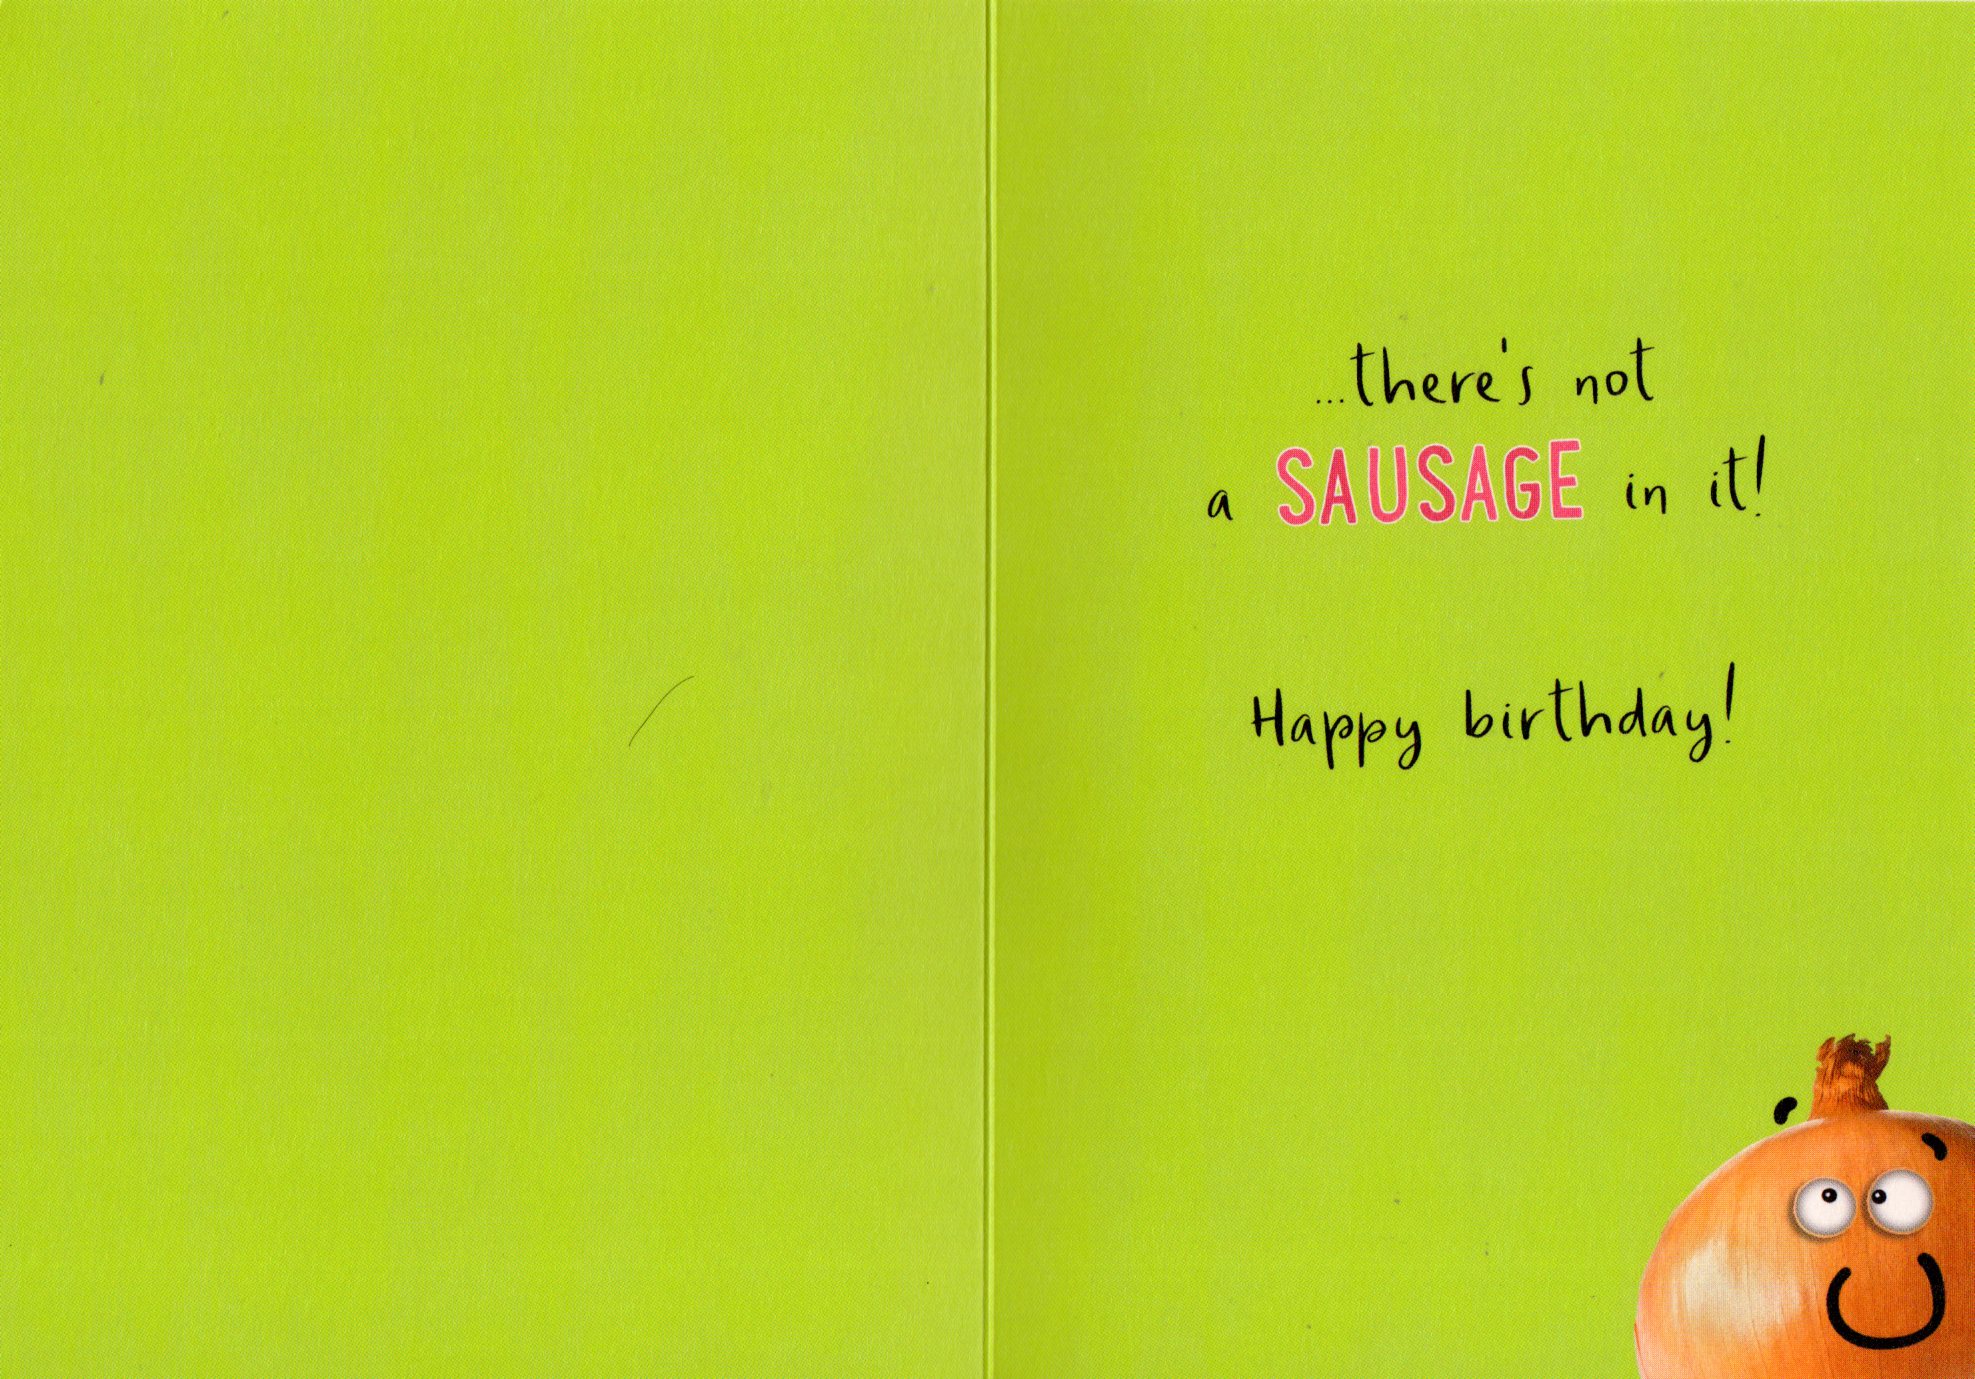 ...there's not
a SAUSAGE in it!
Happy birthday!